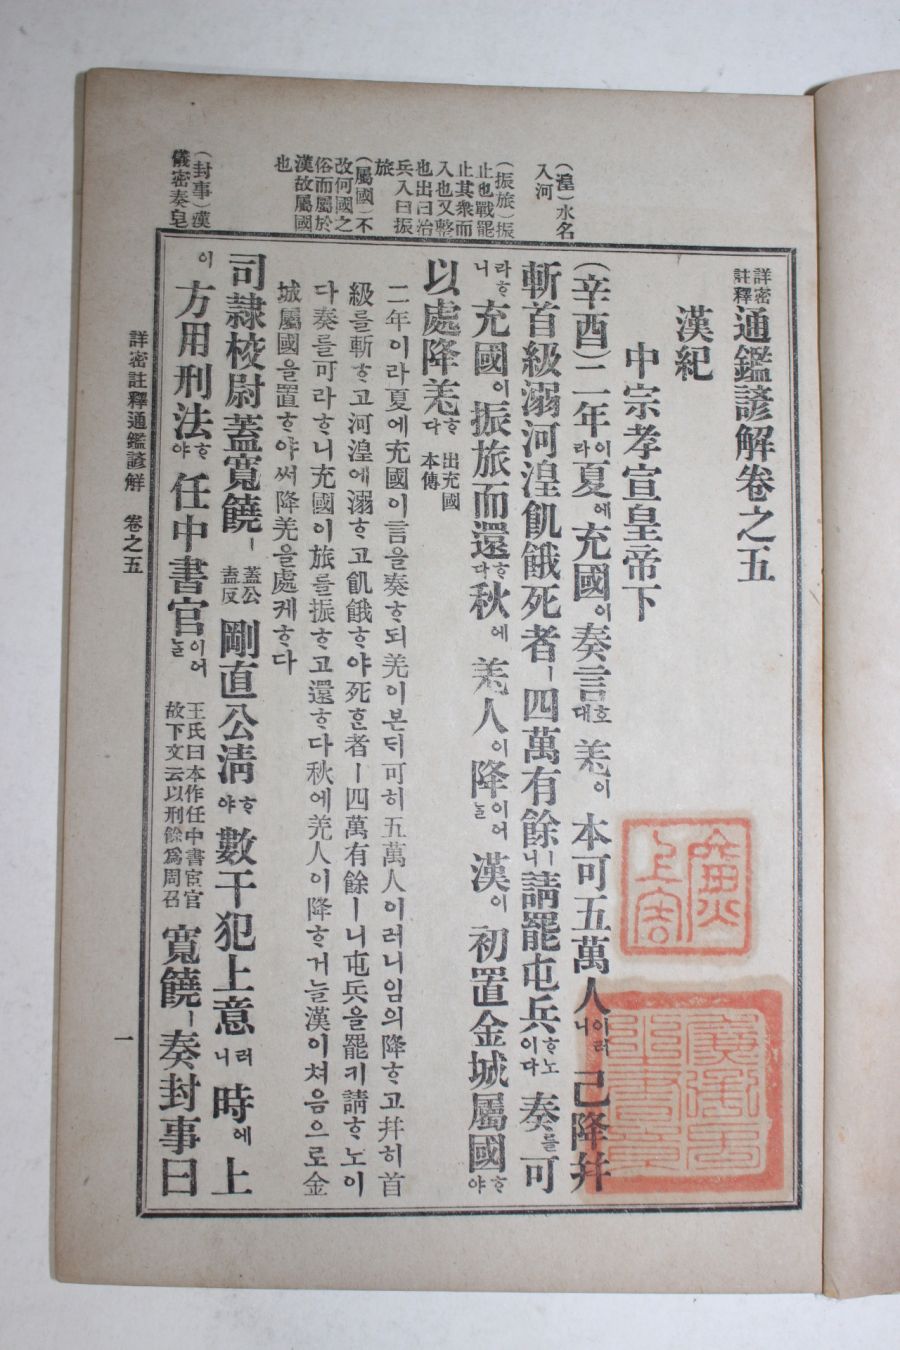 詳密註釋通鑑諺解卷之五
漢紀
中宗孝宣皇帝下
(辛酉)二年이라夏에充國이奏言호대羌이本可五萬人이러니已降幷
斬首級溺河湟飢餓死者ㅣ四萬有餘ㅣ니請罷屯兵ᄒᆞ노이다奏를可
라ᄒᆞ니充國이振旅而還ᄒᆞ다秋에羌人이降이어늘漢이初置金城屬國ᄒᆞ야
以處降羌ᄒᆞ다出充國本傳
二年이라夏에充國이言을奏ᄒᆞ되羌이본ᄃᆡ可히五萬人이러니임의降ᄒᆞ고幷히首
級를斬ᄒᆞ고河湟에溺ᄒᆞ고飢餓ᄒᆞ야死ᄒᆞᆫ者ㅣ四萬有餘ㅣ니屯兵을罷키請ᄒᆞ노이
다奏를可라ᄒᆞ니充國이旅를振ᄒᆞ고還ᄒᆞ다秋에羌人이降ᄒᆞ거늘漢이쳐음으로金
城屬國을置ᄒᆞ야써降羌을處케ᄒᆞ다
司隷校尉蓋寬饒ㅣ蓋公盍反剛直公淸ᄒᆞ야數干犯上意러니時에上
이方用刑法ᄒᆞ야任中書官이어늘王氏曰本作任中書宦官故下文云以刑餘爲周召寬饒ㅣ奏封事曰
(湟)水名
入河
(振旅)振
止也戰罷
止其衆而
入也又整
也出曰治
兵入曰振
旅
(屬國)不
改何國之
俗而屬於
漢故屬國
也
(封事)漢
儀密奏皂
詳密註釋通鑑諺解 卷之五
一